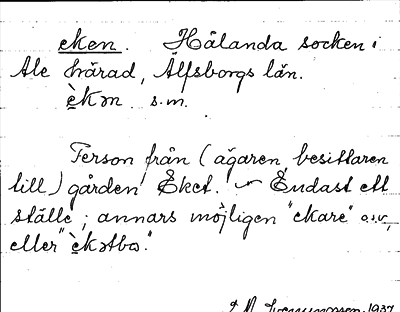 eken. Hålanda socken i
Ale härad, Älfsborgs län.
èkən s.m.
Person från (ägaren besittaren
till) gården Eket. ~ Endast ett
ställe; annars möjligen "ekare" o.s.v,
eller "èkətbo".
1937